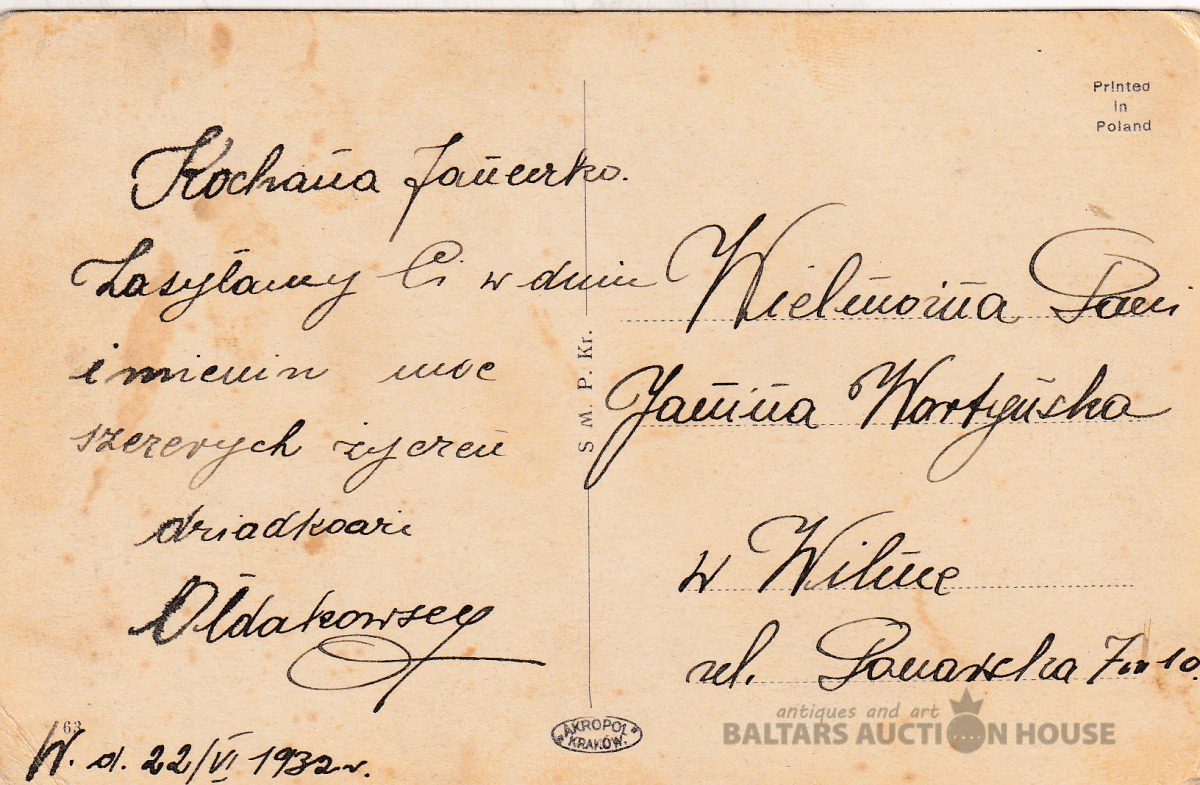 Printed
in
Poland
Kochana Janeczko.
Zasyłamy Ci w dniu
imienin moc
szczerych życzeń
dziadkowie
Ołdakowscy
63
W. d. 22/VI 1932 r.
S. M. P. Kr.
AKROPOL
KRAKÓW.
Wielmożna Pani
Janina Wortyńska
w Wilnie
ul. Ponarska 7 m 10.
antiques and art
BALTARS AUCTION HOUSE